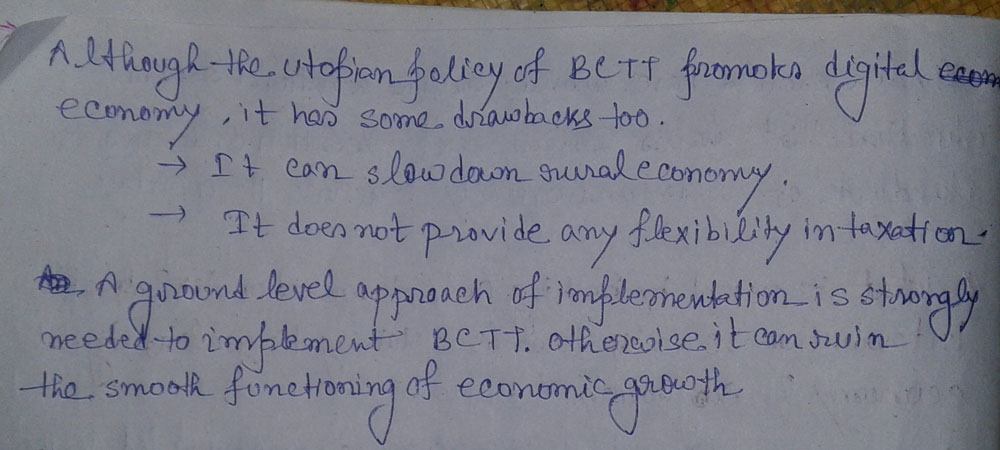 Although the utopian policy of BCTT promotes digital econ
economy, it has some drawbacks too.
→ It can slowdown rural economy.
→ It does not provide any flexibility in taxation.
A ground level approach of implementation is strongly
needed to implement BCTT. otherwise it can ruin
the smooth functioning of economic growth